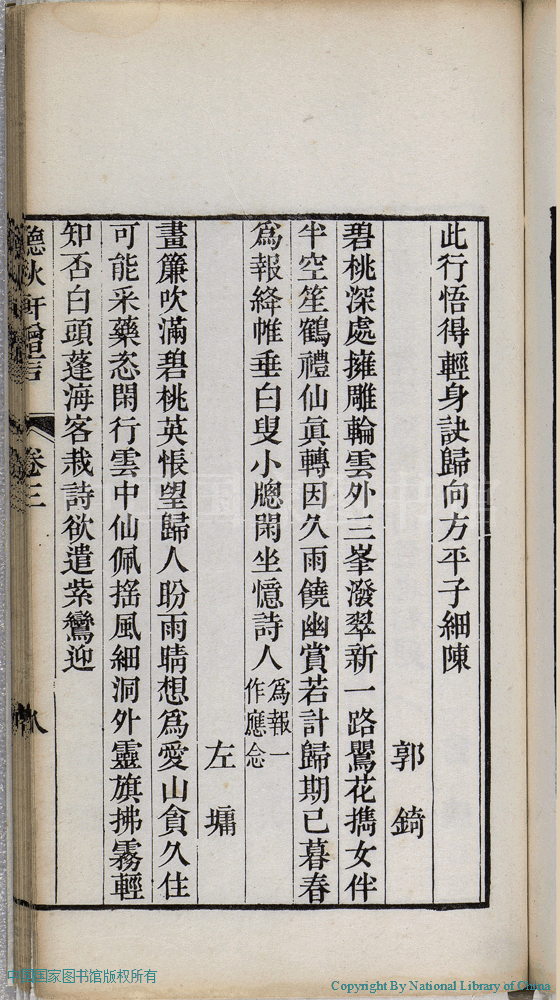 此行悟得輕身訣歸向方平子細陳
郭錡
碧桃深處擁雕輪雲外三峯潑翠新一路鸎花擕女伴
半空笙鶴禮仙眞轉因久雨饒幽賞若計歸期已暮春
爲報絳帷垂白叟小牕閑坐憶詩人爲報一作應念
左墉
畫簾吹滿碧桃英悵望歸人盼雨晴想爲愛山貪久住
可能采藥恣閑行雲中仙佩搖風細洞外靈旗拂霧輕
知否白頭蓬海客栽詩欲遣紫鸞迎
聽秋軒贈言 卷三 八
中国国家图书馆版权所有
Copyright By National Library of China